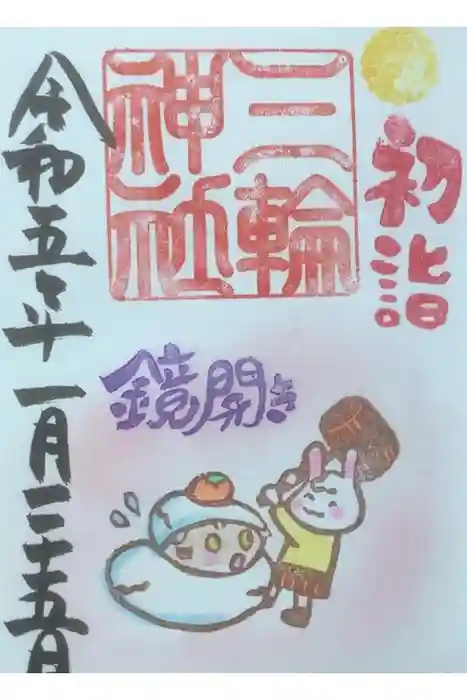 初詣
三輪
神社
鏡開き
令和五年一月二十五日